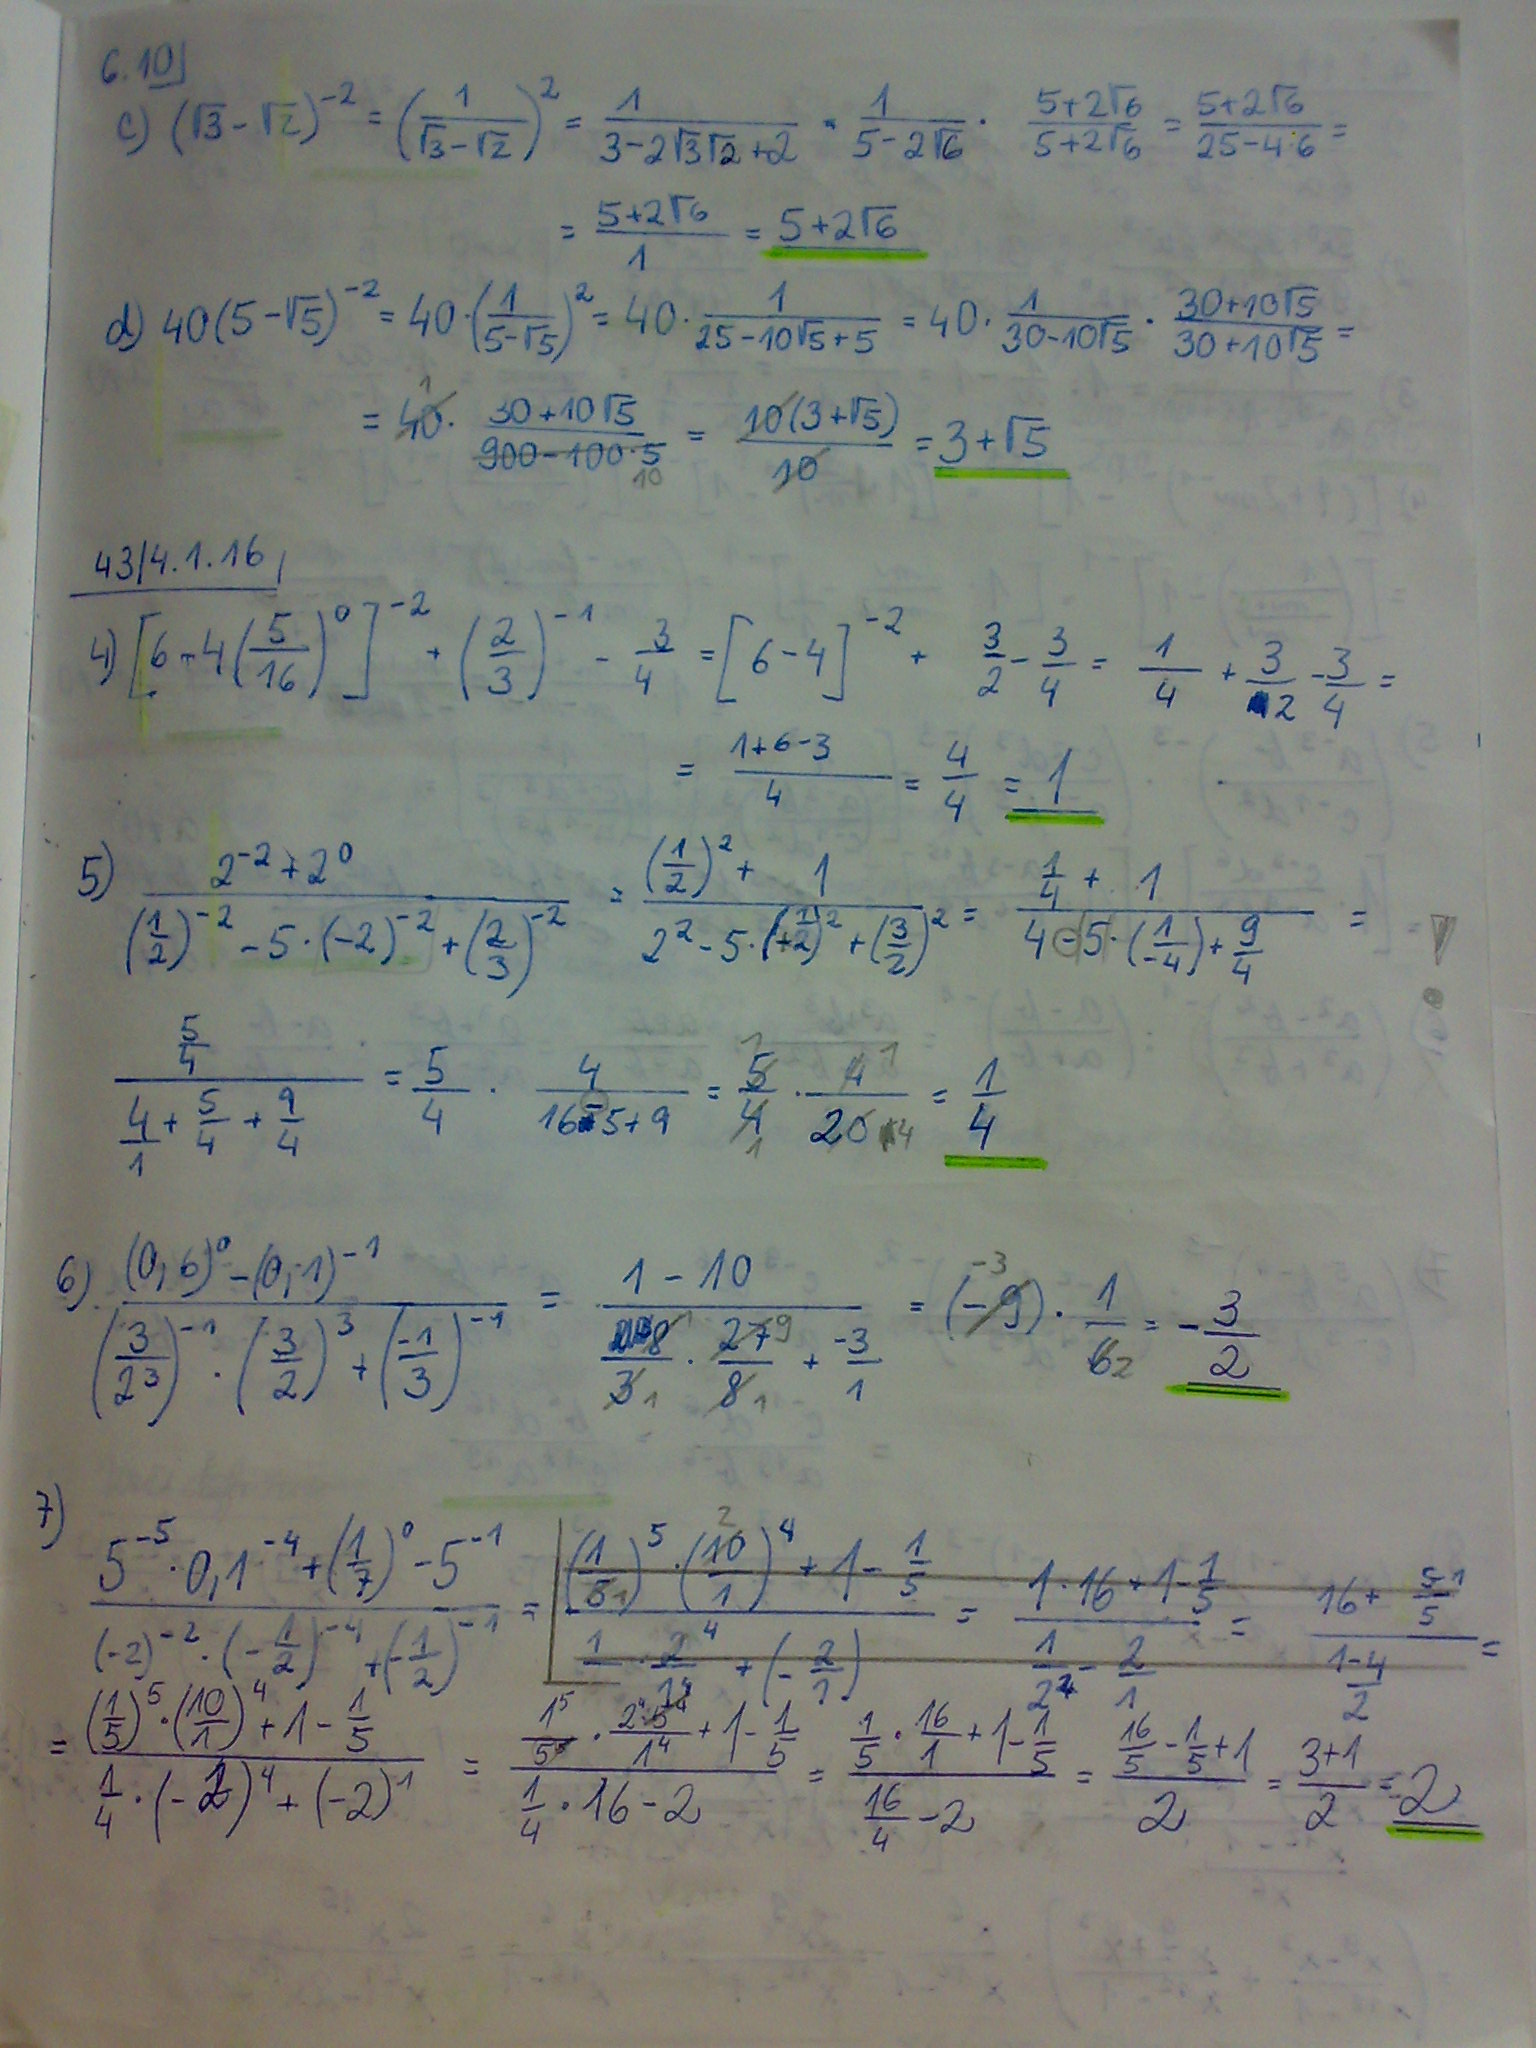 6.10
c) (√3 - √2)^-2 = (1/(√3-√2))^2 = 1/(3-2√3√2+2) = 1/(5-2√6) · (5+2√6)/(5+2√6) = (5+2√6)/(25-4·6) =
= (5+2√6)/1 = 5+2√6
d) 40(5-√5)^-2 = 40·(1/(5-√5))^2 = 40 · 1/(25-10√5+5) = 40 · 1/(30-10√5) · (30+10√5)/(30+10√5) =
= 40 · (30+10√5)/(900-100·5) = 10(3+√5)/10 = 3+√5
43/4.1.16
4) [6-4(5/16)^0]^-2 + (2/3)^-1 - 3/4 = [6-4]^-2 + 3/2 - 3/4 = 1/4 + 3/2 - 3/4 =
= (1+6-3)/4 = 4/4 = 1
5) (2^-2+2^0)/((1/2)^-2 - 5·(-2)^-2 + (2/3)^-2) = ((1/2)^2 + 1)/(2^2 - 5·(+1/2)^2 + (3/2)^2) = (1/4 + 1)/(4-5·(1/-4)+9/4) = !
(5/4)/(4/1 + 5/4 + 9/4) = 5/4 · 4/(16-5+9) = 5/4 · 4/20 = 1/4
6) ((0,6)^0 - (0,1)^-1)/((3/2^3)^-1 · (3/2)^3 + (-1/3)^-1) = (1-10)/(8/3 · 27/8 + -3/1) = (-9) · 1/6 = -3/2
7)
(5^-5 · 0,1^-4 + (1/7)^0 - 5^-1)/((-2)^-2 · (-1/2)^-4 + (-1/2)^-1) = ((1/5)^5 · (10/1)^4 + 1 - 1/5)/( + (-2/1)) = (1·16+1-1/5)/(1/2^2 - 2/1) = (16+ (5-1)/5)/((1-4)/2) =
= ((1/5)^5 · (10/1)^4 + 1 - 1/5)/(1/4 · (-2)^4 + (-2)^1) = (1^5/5^5 · 2^4·5^4/1^4 + 1 - 1/5)/(1/4 · 16 - 2) = (1/5 · 16/1 + 1 - 1/5)/(16/4 - 2) = (16/5 - 1/5 + 1)/2 = (3+1)/2 = 2